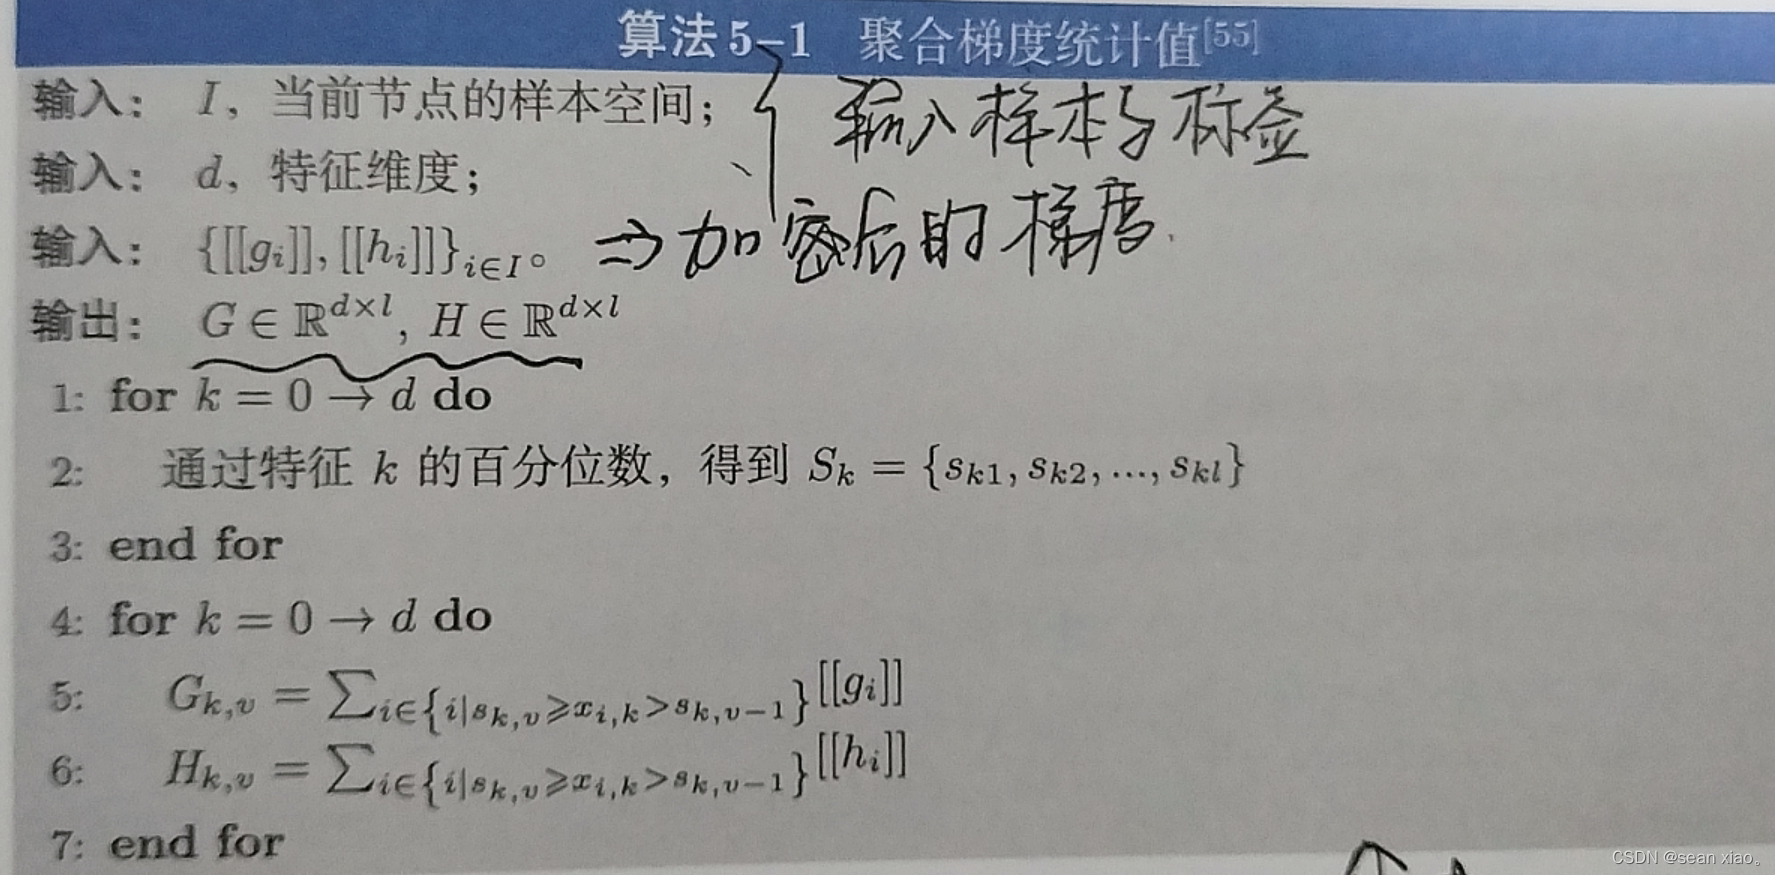 算法 5-1 聚合梯度统计值[55]
输入： I，当前节点的样本空间；
输入样本与标签
输入： d，特征维度；
输入： {[[g_i]], [[h_i]]}_{i∈I}。 ⇒ 加密后的梯度.
输出： G ∈ ℝ^{d×l}, H ∈ ℝ^{d×l}
1: for k = 0 → d do
2: 通过特征 k 的百分位数，得到 S_k = {s_{k1}, s_{k2}, ..., s_{kl}}
3: end for
4: for k = 0 → d do
5: G_{k,v} = ∑_{i∈{i|s_{k,v}⩾x_{i,k}>s_{k,v-1}}} [[g_i]]
6: H_{k,v} = ∑_{i∈{i|s_{k,v}⩾x_{i,k}>s_{k,v-1}}} [[h_i]]
7: end for
CSDN @sean xiao。